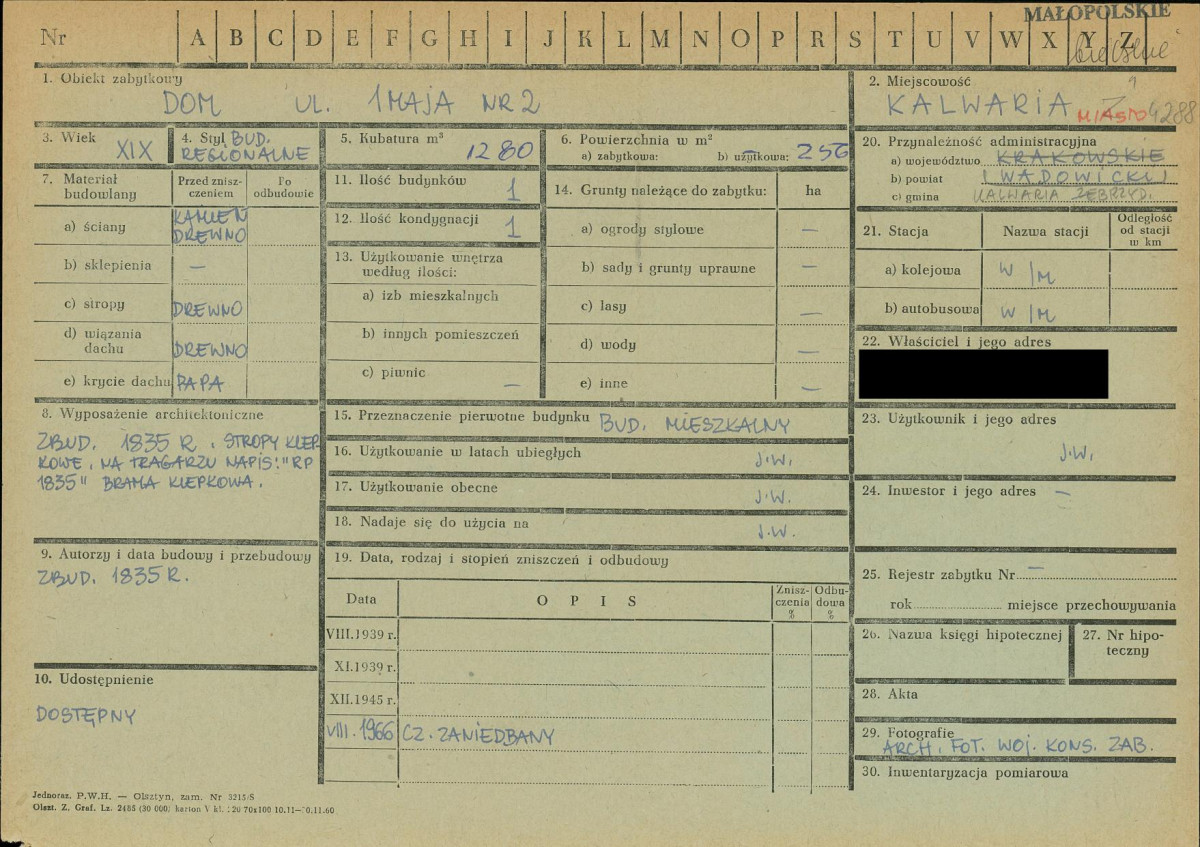 MAŁOPOLSKIE
Nr A B C D E F G H I J K L M N O P R S T U V W X Y Z
bielskie
1. Obiekt zabytkowy
DOM UL. 1 MAJA NR 2
2. Miejscowość
KALWARIA Z
MIASTO 4288
3. Wiek
XIX
4. Styl BUD.
REGIONALNE
5. Kubatura m³
1280
6. Powierzchnia w m²
a) zabytkowa: b) użytkowa: 256
20. Przynależność administracyjna
a) województwo KRAKOWSKIE
b) powiat WADOWICKI
c) gmina KALWARIA ZEBRZYD.
7. Materiał budowlany
Przed zniszczeniem
Po odbudowie
a) ściany KAMIEŃ
DREWNO
b) sklepienia —
c) stropy DREWNO
d) wiązania
dachu DREWNO
e) krycie dachu PAPA
11. Ilość budynków 1
12. Ilość kondygnacji 1
13. Użytkowanie wnętrza
według ilości:
a) izb mieszkalnych
b) innych pomieszczeń
c) piwnic —
14. Grunty należące do zabytku: ha
a) ogrody stylowe —
b) sady i grunty uprawne —
c) lasy —
d) wody —
e) inne —
21. Stacja Nazwa stacji
Odległość
od stacji
w km
a) kolejowa W/M
b) autobusowa W/M
22. Właściciel i jego adres
8. Wyposażenie architektoniczne
ZBUD. 1835 R. STROPY KLEP
KOWE, NA TRAGARZU NAPIS: "RP
1835" BRAMA KLEPKOWA.
15. Przeznaczenie pierwotne budynku BUD. MIESZKALNY
16. Użytkowanie w latach ubiegłych J.W.
17. Użytkowanie obecne J.W.
18. Nadaje się do użycia na J.W.
23. Użytkownik i jego adres
J.W.
24. Inwestor i jego adres —
9. Autorzy i data budowy i przebudowy
ZBUD. 1835 R.
19. Data, rodzaj i stopień zniszczeń i odbudowy
Data OPIS
Znisz-
czenia
%
Odbu-
dowa
%
VIII.1939 r.
XI.1939 r.
XII.1945 r.
VIII.1966 CZ. ZANIEDBANY
25. Rejestr zabytku Nr —
rok miejsce przechowywania
26. Nazwa księgi hipotecznej
27. Nr hipo-
teczny
10. Udostępnienie
DOSTĘPNY
28. Akta
29. Fotografie
ARCH. FOT. WOJ. KONS. ZAB.
30. Inwentaryzacja pomiarowa
Jednoraz. P.W.H. — Olsztyn, zam. Nr 3215/S
Olszt. Z. Graf. Lz. 2485 (30 000) karton V kl.